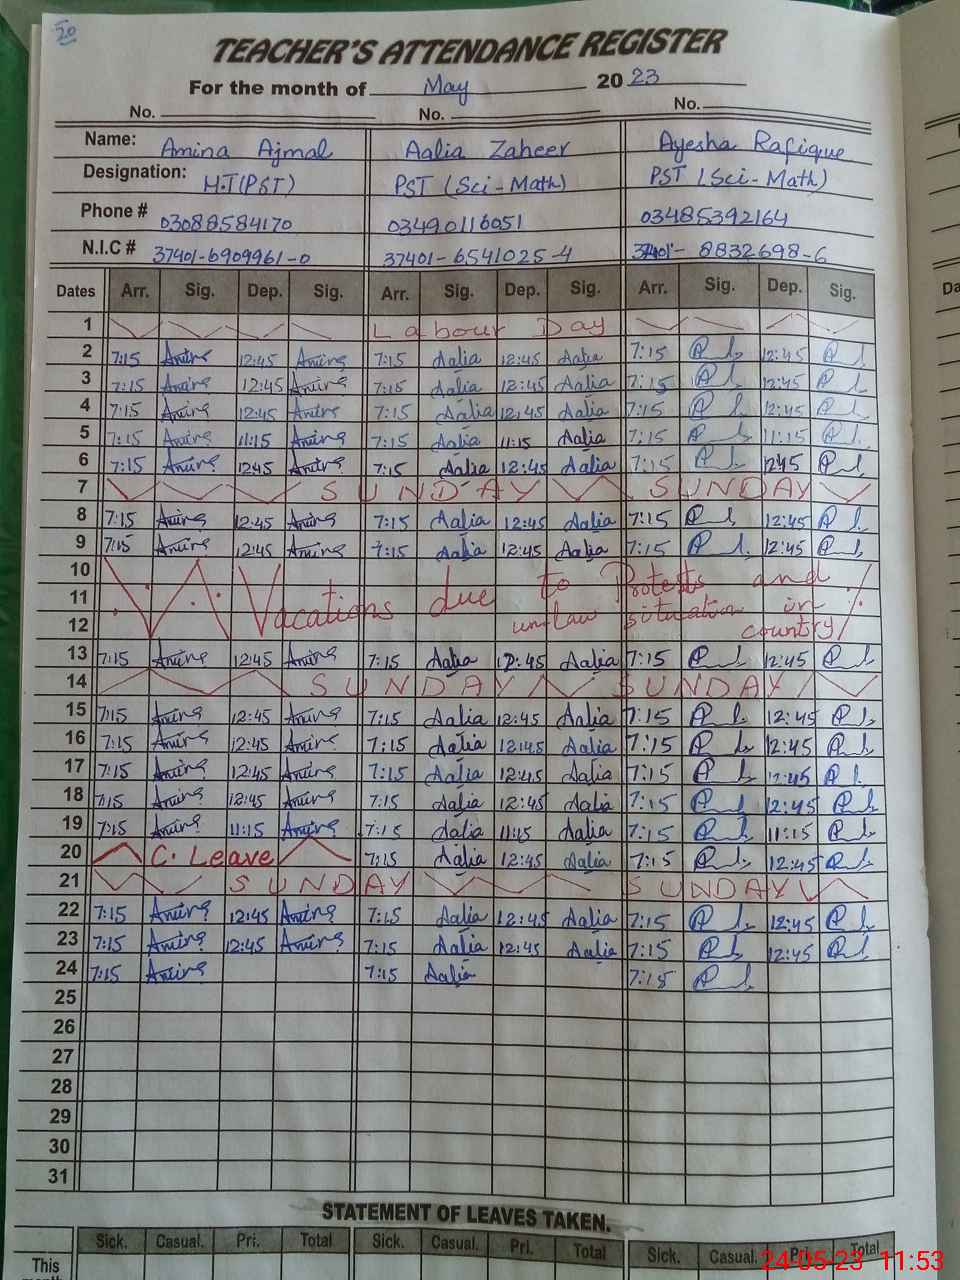 20
TEACHER'S ATTENDANCE REGISTER
For the month of May 2023
No. No. No.
Name: Amina Ajmal Aalia Zaheer Ayesha Rafique
Designation: H.T(PST) PST (Sci-Math) PST (Sci-Math)
Phone # 03088584170 03490116051 03485392164
N.I.C # 37401-6909961-0 37401-6541025-4 37401-8832698-6
Dates Arr. Sig. Dep. Sig. Arr. Sig. Dep. Sig. Arr. Sig. Dep. Sig.
1 Labour Day
2 7:15 Amina 12:45 Amina 7:15 Aalia 12:45 Aalia 7:15 12:45
3 7:15 Amina 12:45 Amina 7:15 Aalia 12:45 Aalia 7:15 12:45
4 7:15 Amina 12:45 Amina 7:15 Aalia 12:45 Aalia 7:15 12:45
5 7:15 Amina 11:15 Amina 7:15 Aalia 11:15 Aalia 7:15 11:15
6 7:15 Amina 12:45 Amina 7:15 Aalia 12:45 Aalia 7:15 12:45
7 SUNDAY SUNDAY
8 7:15 Amina 12:45 Amina 7:15 Aalia 12:45 Aalia 7:15 12:45
9 7:15 Amina 12:45 Amina 7:15 Aalia 12:45 Aalia 7:15 12:45
10 Vacations due to Protests and
11 unlaw situation in
12 country
13 7:15 Amina 12:45 Amina 7:15 Aalia 12:45 Aalia 7:15 12:45
14 SUNDAY SUNDAY
15 7:15 Amina 12:45 Amina 7:15 Aalia 12:45 Aalia 7:15 12:45
16 7:15 Amina 12:45 Amina 7:15 Aalia 12:45 Aalia 7:15 12:45
17 7:15 Amina 12:45 Amina 7:15 Aalia 12:45 Aalia 7:15 12:45
18 7:15 Amina 12:45 Amina 7:15 Aalia 12:45 Aalia 7:15 12:45
19 7:15 Amina 11:15 Amina 7:15 Aalia 11:15 Aalia 7:15 11:15
20 C. Leave 7:15 Aalia 12:45 Aalia 7:15 12:45
21 SUNDAY SUNDAY
22 7:15 Amina 12:45 Amina 7:15 Aalia 12:45 Aalia 7:15 12:45
23 7:15 Amina 12:45 Amina 7:15 Aalia 12:45 Aalia 7:15 12:45
24 7:15 Amina 7:15 Aalia 7:15
25
26
27
28
29
30
31
STATEMENT OF LEAVES TAKEN.
Sick. Casual. Pri. Total Sick. Casual. Pri. Total Sick. Casual. Pri. Total
This
24-05-23 11:53